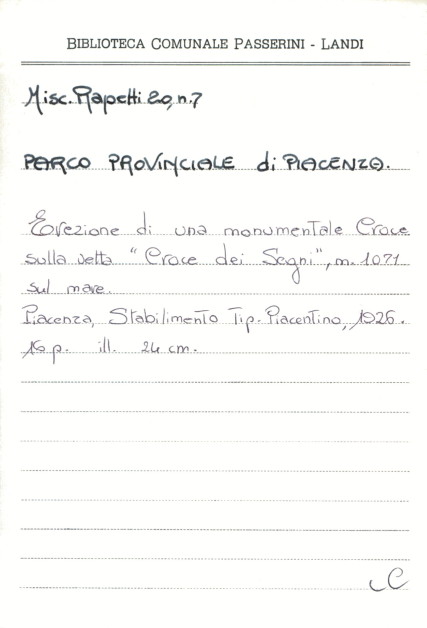 BIBLIOTECA COMUNALE PASSERINI - LANDI
Misc. Rapetti 20, n.7
PARCO PROVINCIALE di PIACENZA.
Erezione di una monumentale Croce
sulla vetta "Croce dei Segni", m. 1071
sul mare.
Piacenza, Stabilimento Tip. Piacentino, 1926.
16 p. ill. 24 cm.